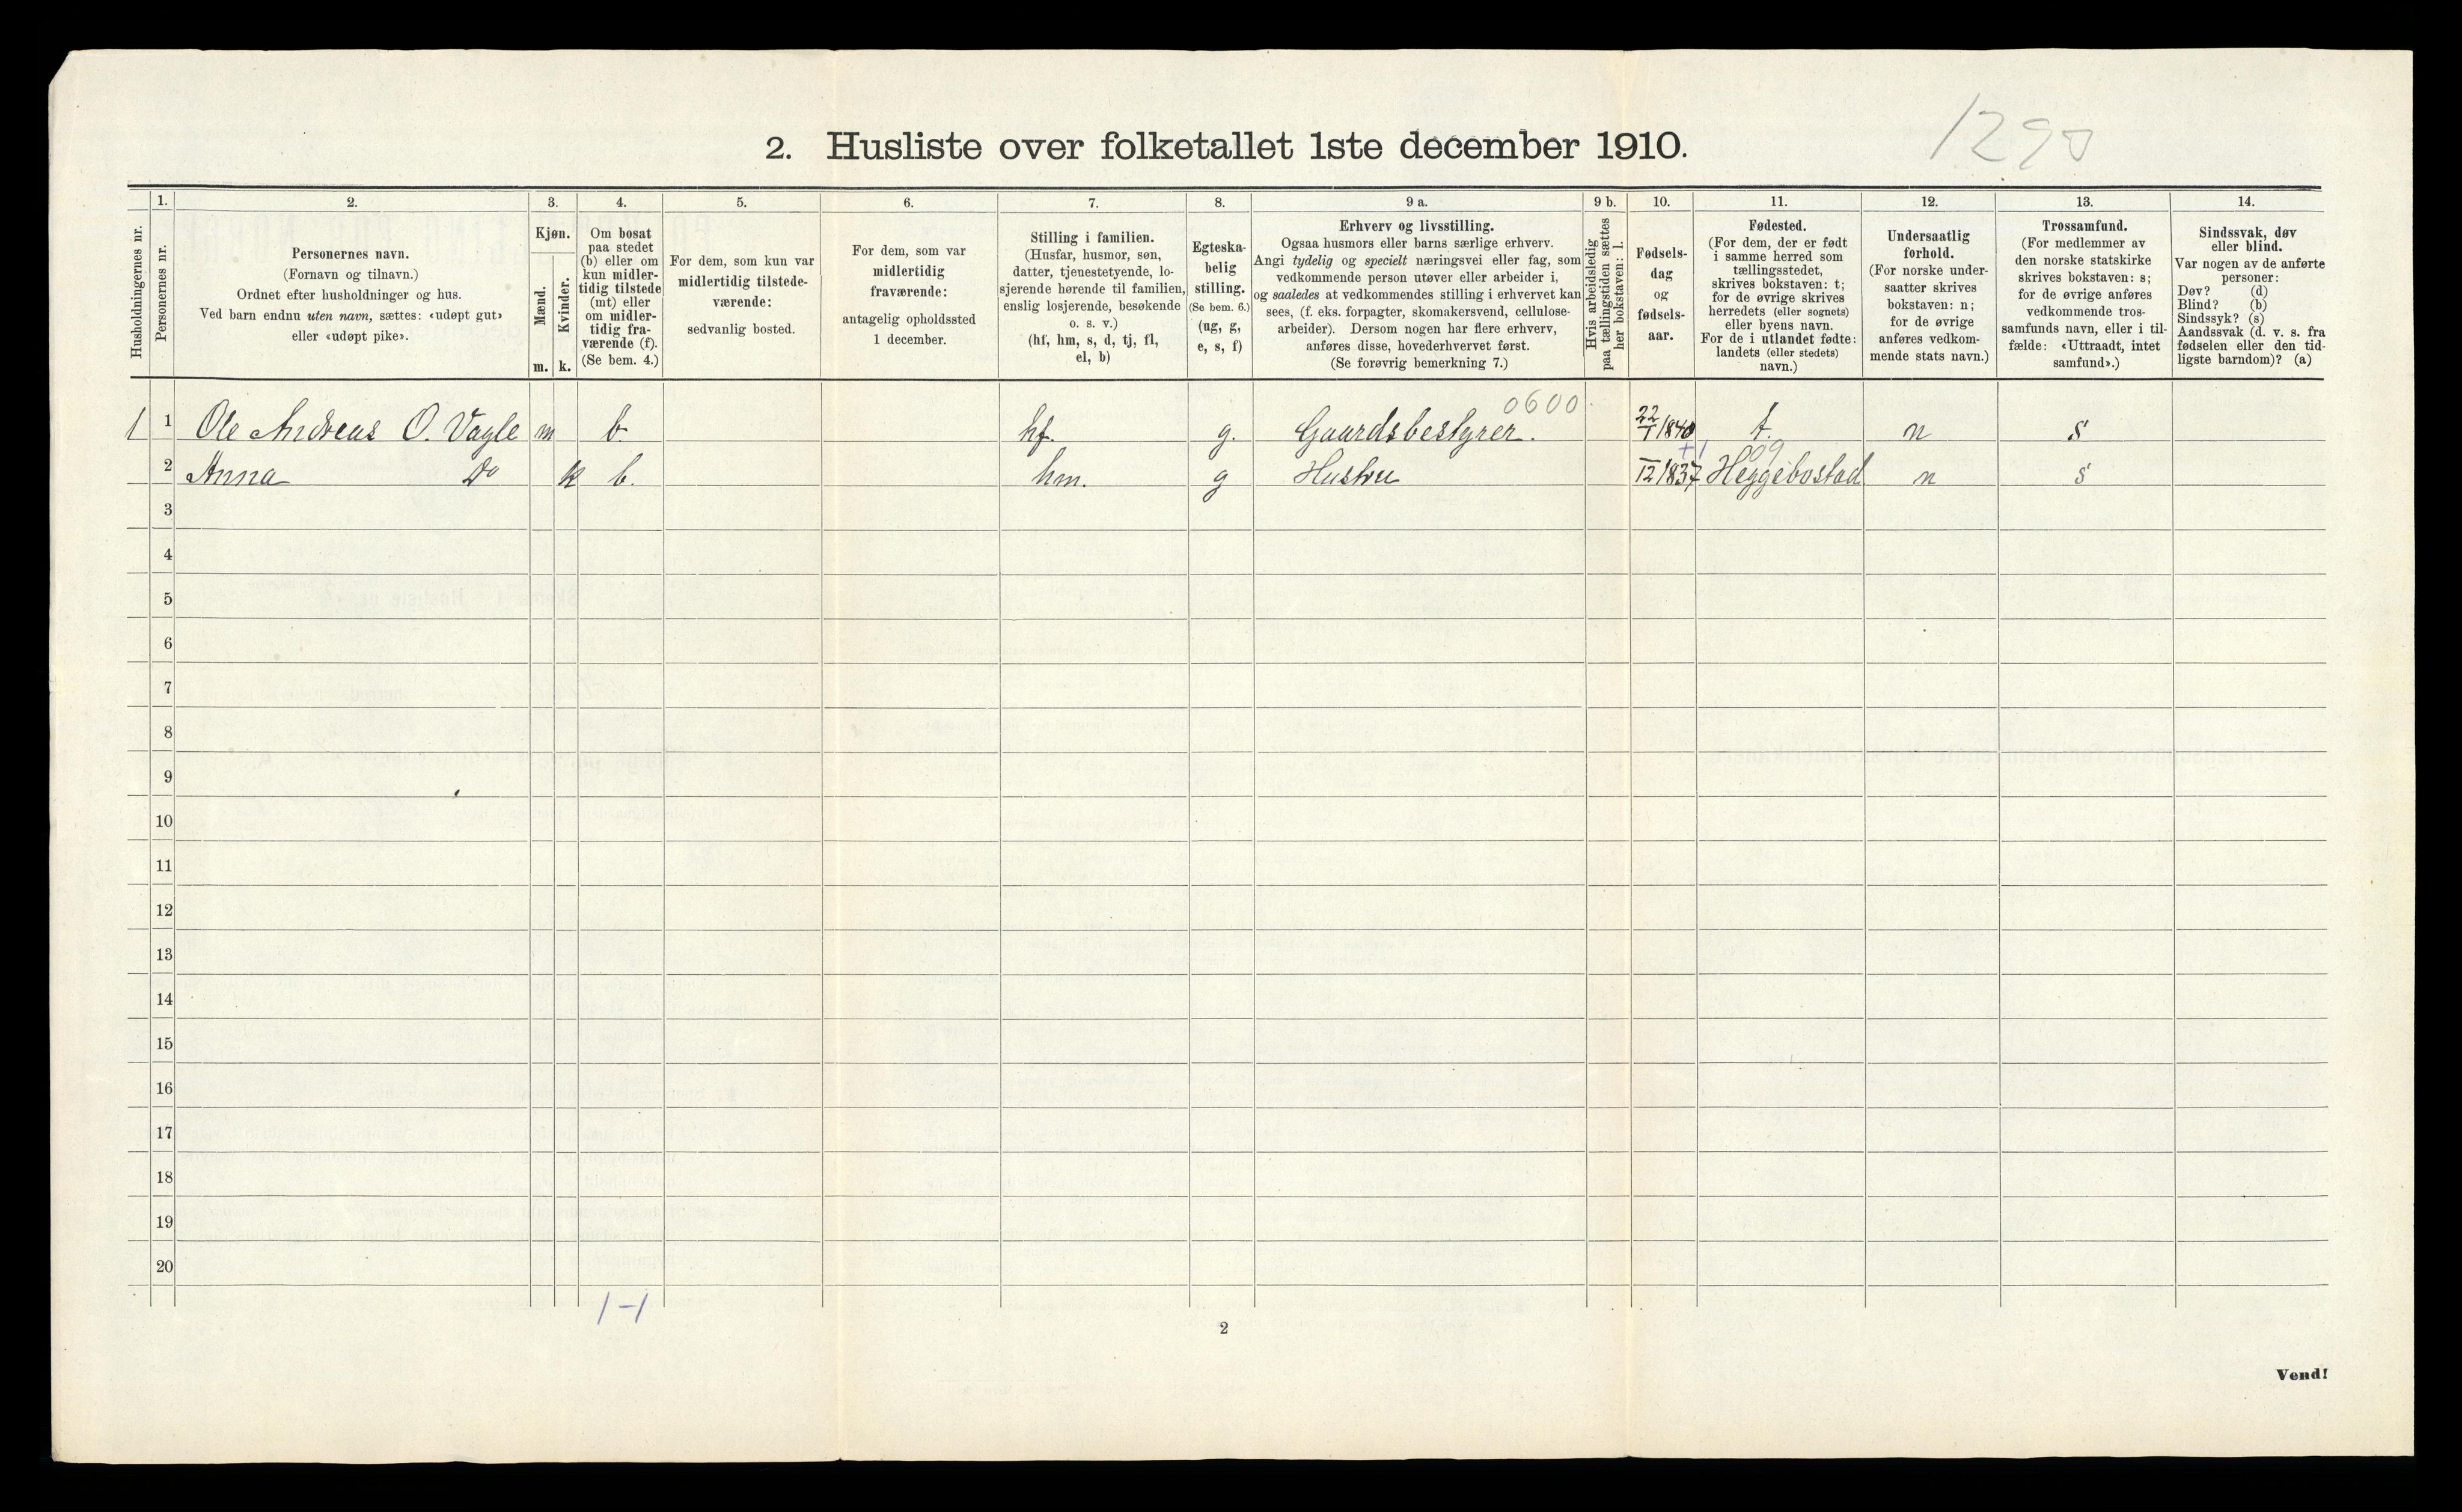 1290
2. Husliste over folketallet 1ste december 1910.
Husholdningernes nr.
1.
Personernes nr.
2.
Personernes navn.
(Fornavn og tilnavn.)
Ordnet efter husholdninger og hus.
Ved barn endnu uten navn, sættes: «udøpt gut»
eller «udøpt pike».
3.
Kjøn.
Mænd.
m.
Kvinder.
k.
4.
Om bosat
paa stedet
(b) eller om
kun midler-
tidig tilstede
(mt) eller
om midler-
tidig fra-
værende (f).
(Se bem. 4.)
5.
For dem, som kun var
midlertidig tilstede-
værende:
sedvanlig bosted.
6.
For dem, som var
midlertidig
fraværende:
antagelig opholdssted
1 december.
7.
Stilling i familien.
(Husfar, husmor, søn,
datter, tjenestetyende, lo-
sjerende hørende til familien,
enslig losjerende, besøkende
o. s. v.)
(hf, hm, s, d, tj, fl,
el, b)
8.
Egteska-
belig
stilling.
(Se bem. 6.)
(ug, g,
e, s, f)
9 a.
Erhverv og livsstilling.
Ogsaa husmors eller barns særlige erhverv.
Angi tydelig og specielt næringsvei eller fag, som
vedkommende person utøver eller arbeider i,
og saaledes at vedkommendes stilling i erhvervet kan
sees, (f. eks. forpagter, skomakersvend, cellulose-
arbeider). Dersom nogen har flere erhverv,
anføres disse, hovederhvervet først.
(Se forøvrig bemerkning 7.)
9 b.
Hvis arbeidsledig
paa tællingstiden sættes
her bokstaven: l.
10.
Fødsels-
dag
og
fødsels-
aar.
11.
Fødested.
(For dem, der er født
i samme herred som
tællingsstedet,
skrives bokstaven: t;
for de øvrige skrives
herredets (eller sognets)
eller byens navn.
For de i utlandet fødte:
landets (eller stedets)
navn.)
12.
Undersaatlig
forhold.
(For norske under-
saatter skrives
bokstaven: n;
for de øvrige
anføres vedkom-
mende stats navn.)
13.
Trossamfund.
(For medlemmer av
den norske statskirke
skrives bokstaven: s;
for de øvrige anføres
vedkommende tros-
samfunds navn, eller i til-
fælde: «Uttraadt, intet
samfund».)
14.
Sindssvak, døv
eller blind.
Var nogen av de anførte
personer:
Døv? (d)
Blind? (b)
Sindssyk? (s)
Aandssvak (d. v. s. fra
fødselen eller den tid-
ligste barndom)? (a)
0600
1 1 Ole Andreas O. Vagle m b. hf. g. Gaardsbestyrer. 22/1 1840 t. n s
+1 09
2 Anna Do k b. hm. g Hustru 12 1837 Heggebostad n s
3
4
5
6
7
8
9
10
11
12
13
14
15
16
17
18
19
20
1-1
2
Vend!